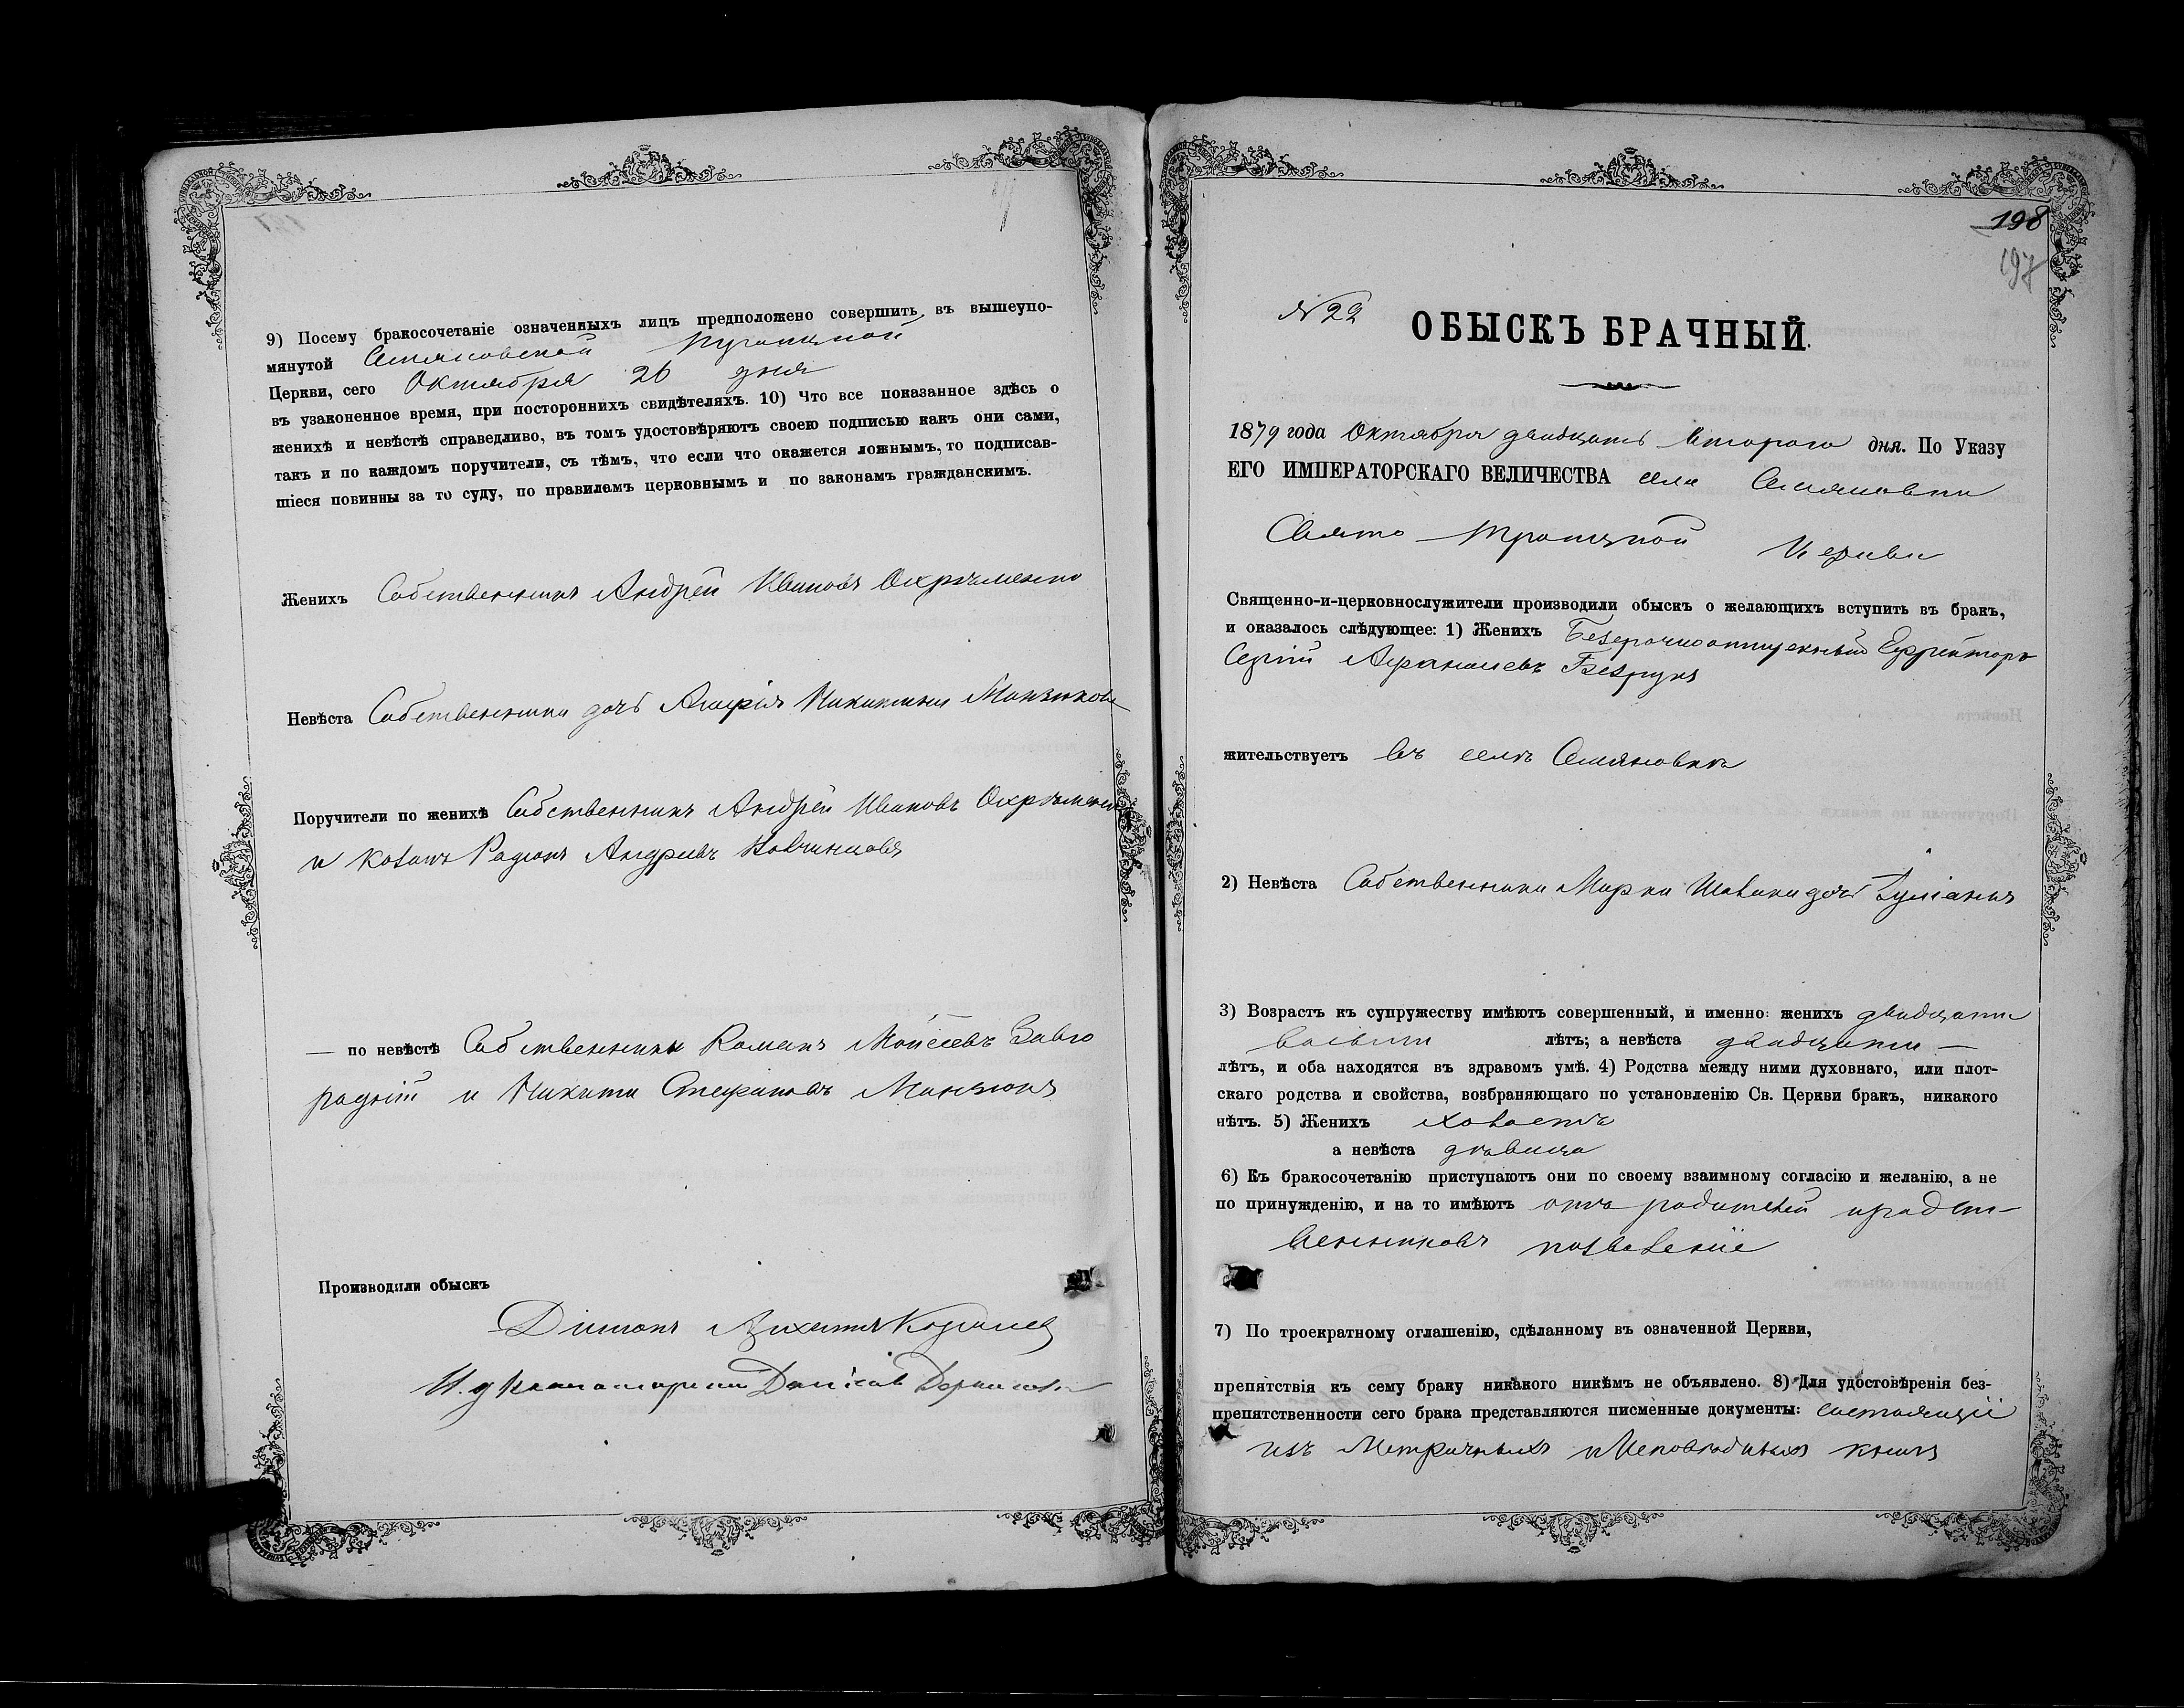 9) Посему бракосочетаніе означенныхъ лицъ предположено совершить въ вышеупо-
мянутой Семяновской
Церкви, сего Октября 26 дня
въ узаконенное время, при постороннихъ свидѣтеляхъ. 10) Что все показанное здѣсь о
женихѣ и невѣстѣ справедливо, въ томъ удостовѣряютъ своею подписью какъ они сами,
такъ и по каждомъ поручители, съ тѣмъ, что если что окажется ложнымъ, то подписав-
шіеся повинны за то суду, по правиламъ церковнымъ и по законамъ гражданскимъ.
Женихъ Собственникъ Андрей Ивановъ Охрѣменко
Невѣста Собственника дочь Агафія Никитина Манзюкова
Поручители по женихѣ Собственникъ Андрей Ивановъ Охрѣменко
и козакъ Радіонъ Андреевъ
— по невѣстѣ Собственники Романъ Моисеевъ Завго
родній и Никита Стефановъ Манзюкъ
Производили обыскъ
Діаконъ
И. д. Даніилъ
198
197
№ 22
ОБЫСКЪ БРАЧНЫЙ.
1879 года Октября двадцать второго дня. По Указу
ЕГО ИМПЕРАТОРСКАГО ВЕЛИЧЕСТВА села Семяновки
Свято-Троицкой Церкви
Священно-и-церковнослужители производили обыскъ о желающихъ вступить въ бракъ,
и оказалось слѣдующее: 1) Женихъ Безсрочноотпускный Ефрейторъ
Сергій Афанасіевъ Безрукъ
жительствуетъ въ селѣ Семяновкѣ
2) Невѣста Собственника Марка дочь Іуліанія
3) Возрастъ къ супружеству имѣютъ совершенный, и именно: женихъ двадцати
восьми лѣтъ; а невѣста двадцати —
лѣтъ, и оба находятся въ здравомъ умѣ. 4) Родства между ними духовнаго, или плот-
скаго родства и свойства, возбраняющаго по установленію Св. Церкви бракъ, никакого
нѣтъ. 5) Женихъ холостъ
а невѣста дѣвица
6) Къ бракосочетанію приступаютъ они по своему взаимному согласію и желанію, а не
по принужденію, и на то имѣютъ отъ родителей и родст-
венниковъ позволеніе
7) По троекратному оглашенію, сдѣланному въ означенной Церкви,
препятствія къ сему браку никакого никѣмъ не объявлено. 8) Для удостовѣренія без-
препятственности сего брака представляются писменные документы: состоящіе
изъ Метричныхъ и Исповѣдныхъ книгъ